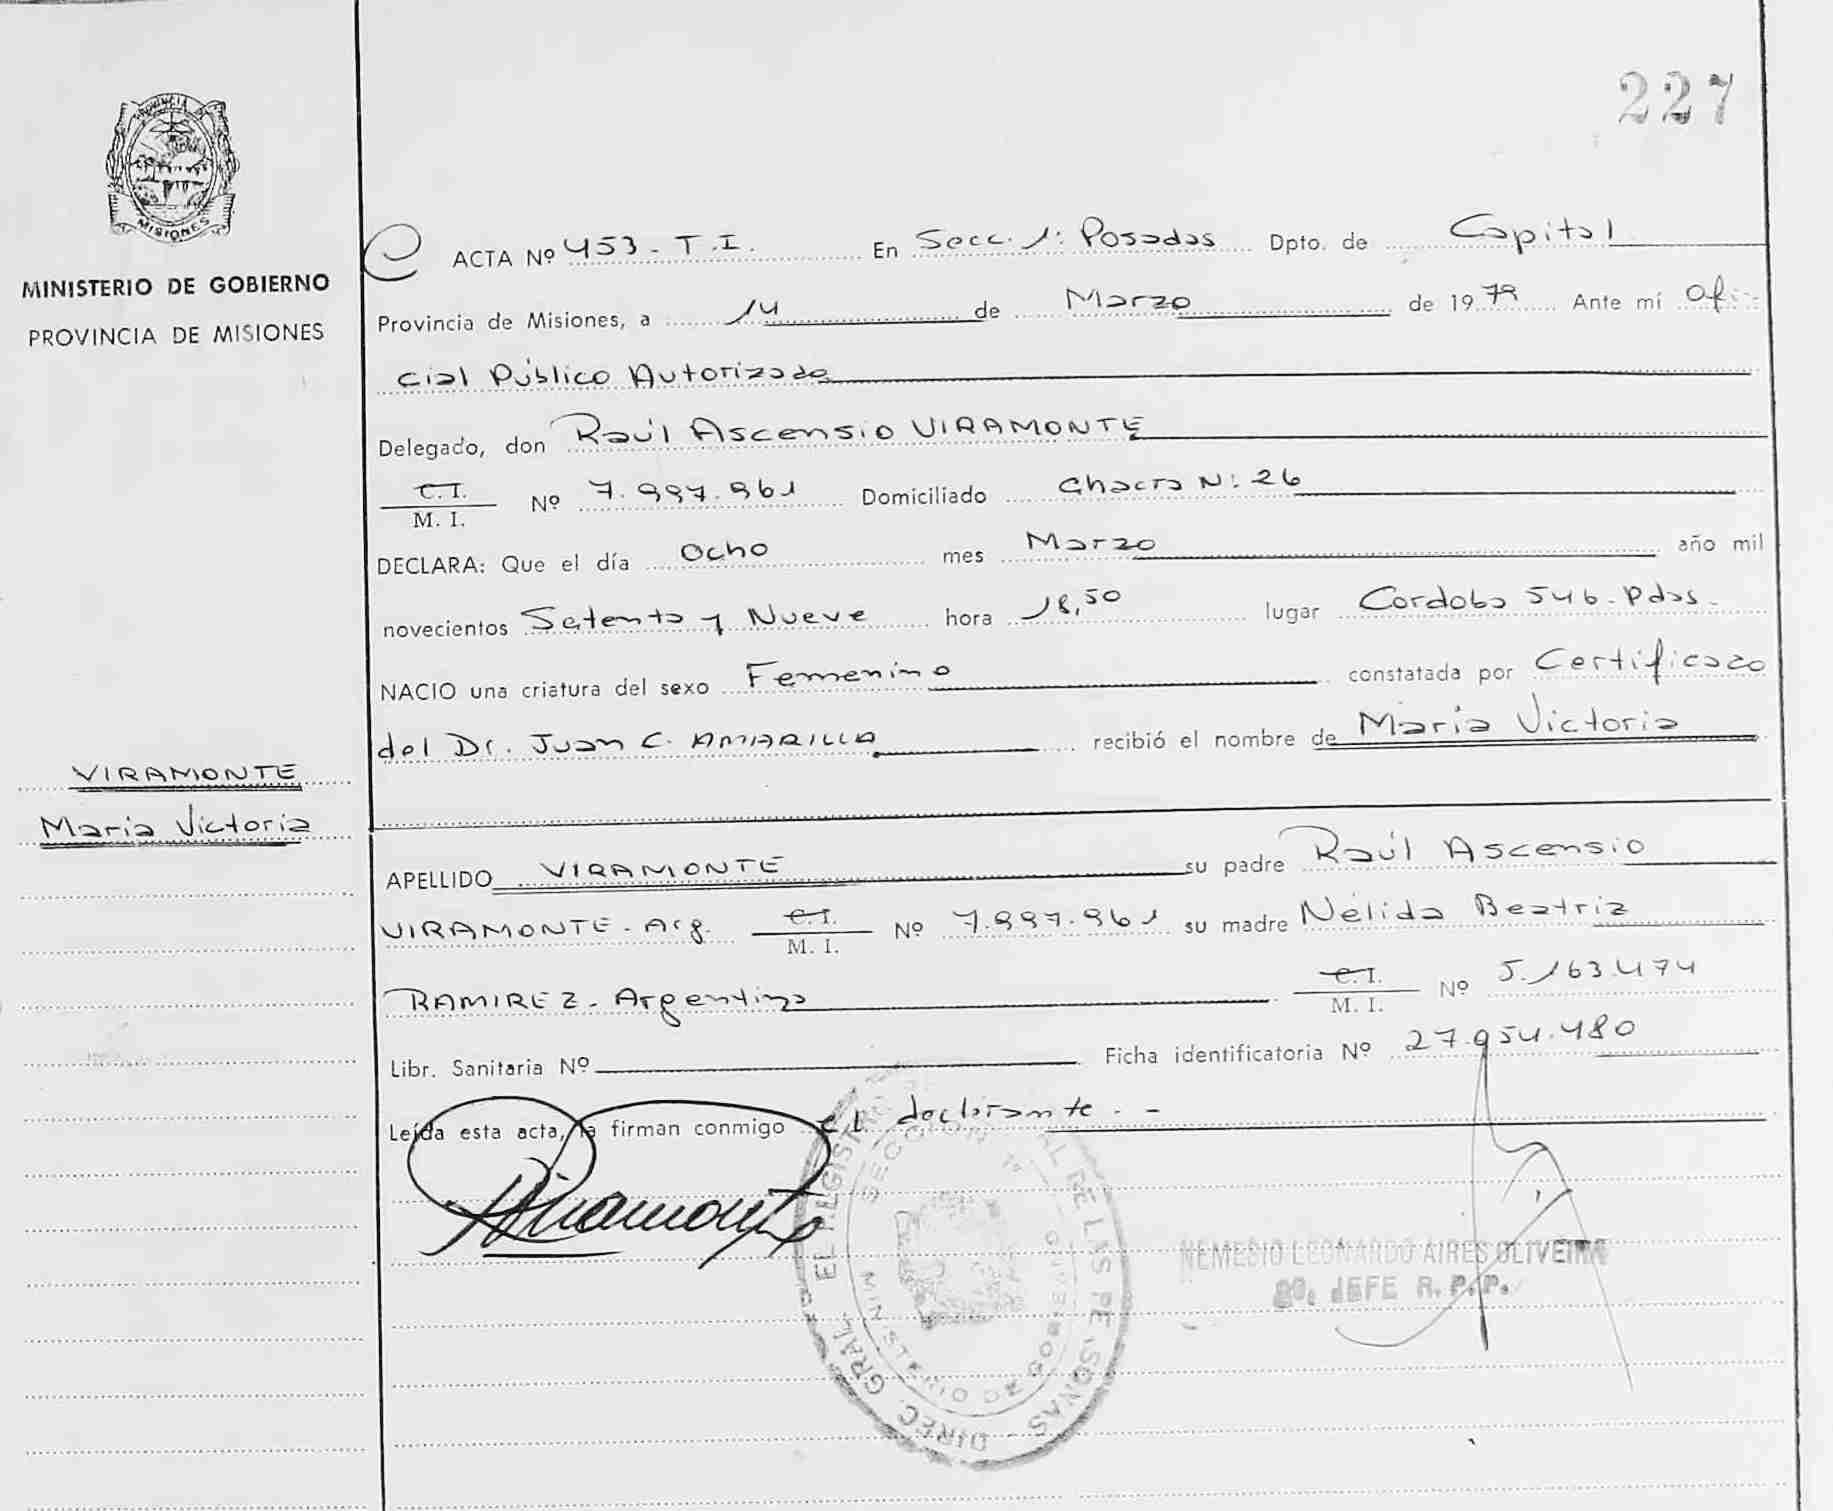 227
PROVINCIA DE
MISIONES
MINISTERIO DE GOBIERNO
PROVINCIA DE MISIONES
ACTA Nº 453 - T.I. En Secc. 1: Posadas Dpto. de Capital
Provincia de Misiones, a 14 de Marzo de 1979 Ante mí Ofi-
cial Público Autorizado
Delegado, don Raúl Ascensio VIRAMONTE
C.I.
M. I. Nº 7.997.961 Domiciliado Chacra N: 26
DECLARA: Que el día Ocho mes Marzo año mil
novecientos Setenta y Nueve hora 18,50 lugar Cordoba 546 - Pdas -
NACIO una criatura del sexo Femenino constatada por Certificado
del Dr. Juan C. AMARILLA recibió el nombre de María Victoria
VIRAMONTE
María Victoria
APELLIDO VIRAMONTE su padre Raúl Ascensio
VIRAMONTE - Arg. C.I.
M. I. Nº 7.997.961 su madre Nélida Beatriz
RAMIREZ - Argentina C.I.
M. I. Nº 5.163.474
Libr. Sanitaria Nº Ficha identificatoria Nº 27.954.480
Leída esta acta, la firman conmigo el declarante . -
Viramonte
NEMESIO LEONARDO AIRES OLIVEIRA
JEFE R.P.P.
DIREC. GRAL. EL REGISTRO DE LAS PERSONAS
SECCION 1ª
MINISTERIO DE GOBIERNO